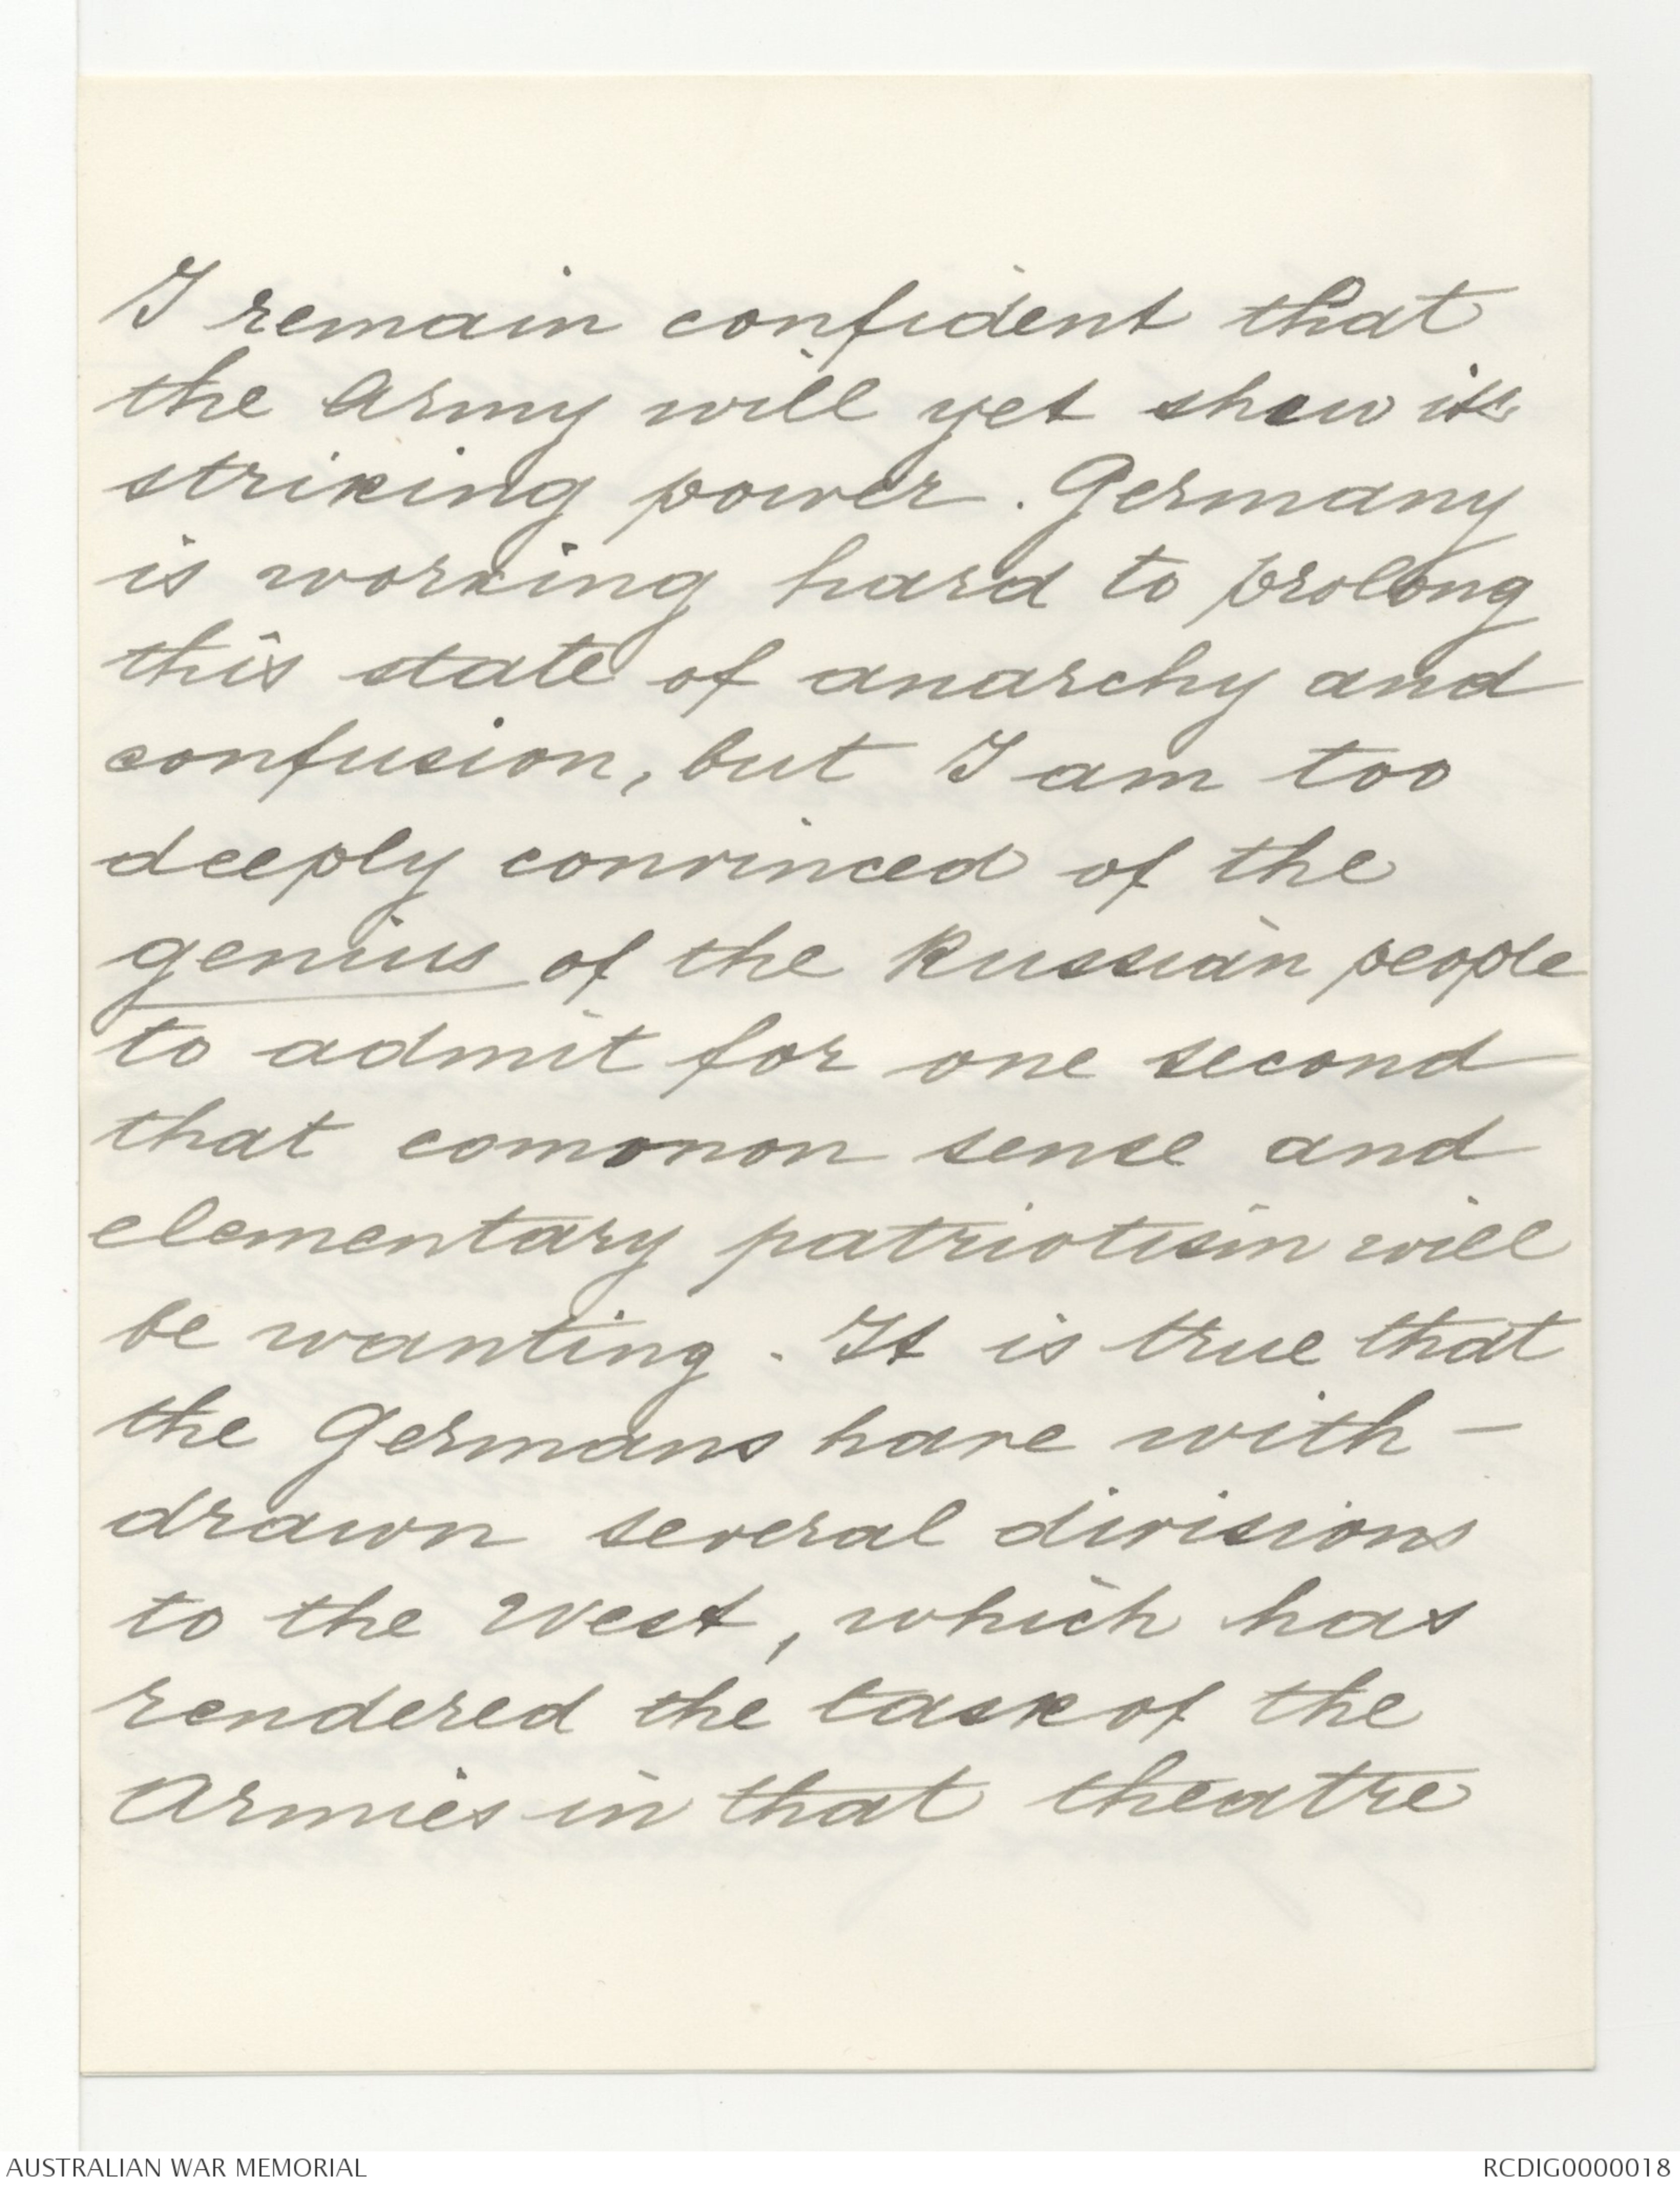 I remain confident that
the Army will yet shew its
striking power. Germany
is working hard to prolong
this state of anarchy and
confusion, but I am too
deeply convinced of the
genius of the Russian people
to admit for one second
that common sense and
elementary patriotism will
be wanting. It is true that
the Germans have with-
drawn several divisions
to the West, which has
rendered the task of the
Armies in that theatre
AUSTRALIAN WAR MEMORIAL
RCDIG0000018